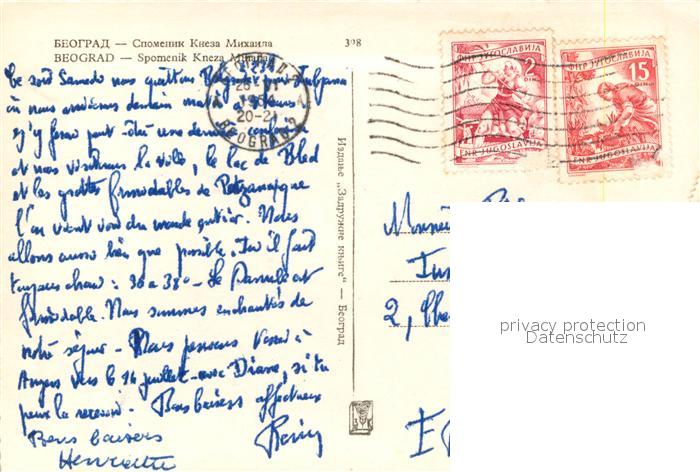 БЕОГРАД — Споменик Кнеза Михаила 398
BEOGRAD — Spomenik Kneza Mihaila
Ce soir Samedi nous quittons Belgrade pour
où nous arriverons demain matin à
j'y ferai une dernière
et nous visiterons la ville, le lac de Bled
et les grottes formidables de que
l'on vient voir du monde entier. Nous
allons aussi bien que possible. Ici il fait
toujours chaud: 30 à 38° - Le Danube est
formidable. Nous sommes enchantés de
notre séjour - Nous pensons être à
Angers vers le 14 juillet - avec Diane, si tu
peux la recevoir. Bons baisers affectueux
Bons baisers
Henriette
Издање „Задружне књиге“ — Београд
БЕОГРАД 2
20-21
BEOGRAD 2
ФНР ЈУГОСЛАВИЈА
2
DIN
FNR JUGOSLAVIJA
ФНР ЈУГОСЛАВИЈА
15
DIN
FNR JUGOSLAVIJA
Monsieur
2,
privacy protection
Datenschutz